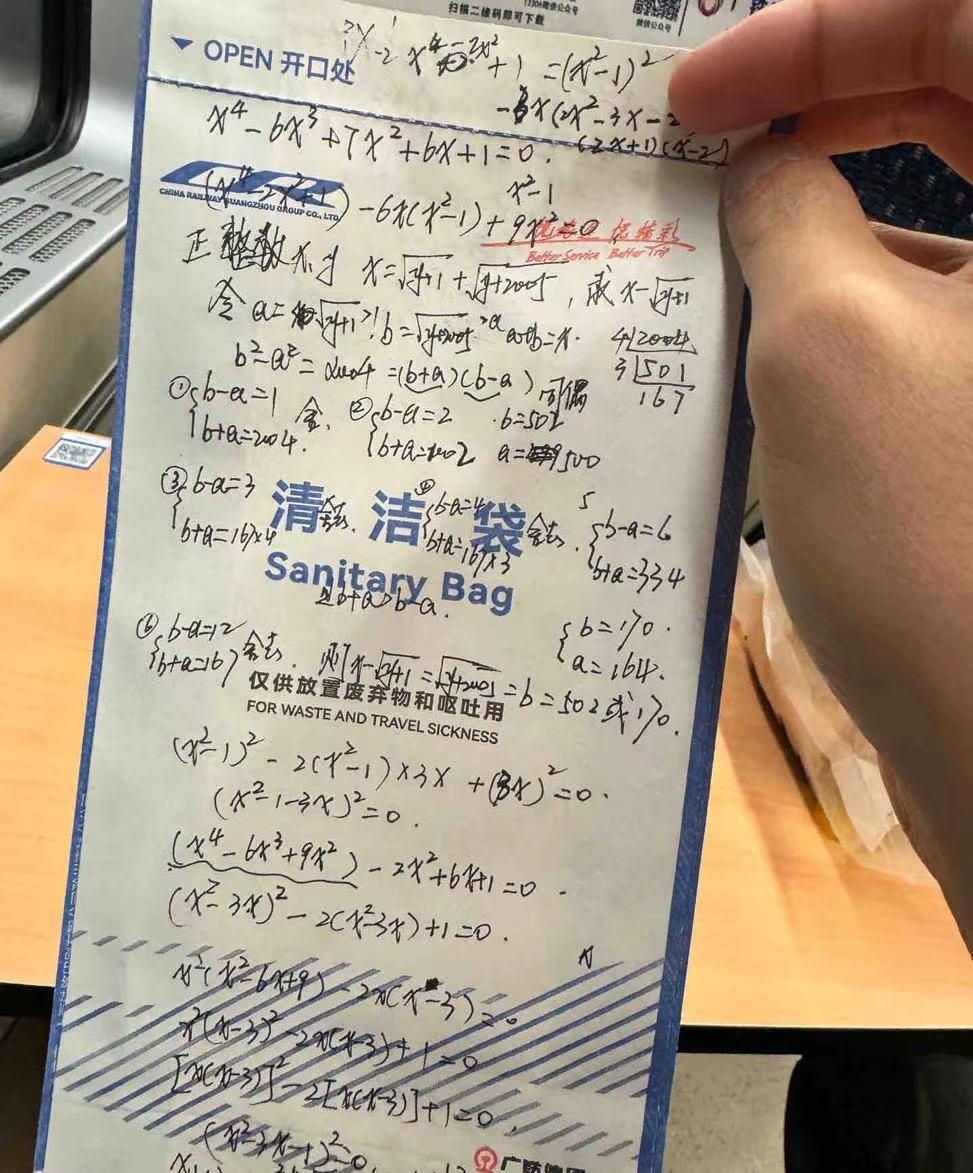 扫描二维码即可下载
12306微信公众号
微信公众号
OPEN 开口处
x⁴-2x²+1 =(x²-1)²
-3x(2x²-3x-2
(2x+1)(x-2)
x⁴-6x³+7x²+6x+1=0.
x²-1
CHINA RAILWAY GUANGZHOU GROUP CO., LTD
(x⁴-2x²+1) -6x(x²-1)+9x²=0
Better Service Better Trip
正整数 x 为 x=√y+1 +√y+2005, 或 x-√y+1
令 a=√y+1 b=√y+2005 a+b=x.
4 2004
b²-a²=2004=(b+a)(b-a) 同偶
3 501
167
① {b-a=1 舍. ② {b-a=2 b=502
{b+a=2004. {b+a=1002 a=500
③ {b-a=3 舍去. ④ {b-a=4 舍去. 5 {b-a=6
{b+a=167×4 {b+a=167×3 {b+a=334
清洁袋
Sanitary Bag
且b+a>b-a.
{b=170.
{a=164.
⑥ {b-a=12 舍去.
{b+a=167
则x-√y+1=√y+2005=b=502或170.
仅供放置废弃物和呕吐用
FOR WASTE AND TRAVEL SICKNESS
(x²-1)²-2(x²-1)×3x+(3x)²=0.
(x²-1-3x)²=0.
(x⁴-6x³+9x²)-2x²+6x+1=0.
(x²-3x)²-2(x²-3x)+1=0.
x²(x²-6x+9)-2x(x-3)=0
x²(x-3)²-2x(x-3)+1=0
[x(x-3)]²-2[x(x-3)]+1=0.
(x²-3x-1)²=0